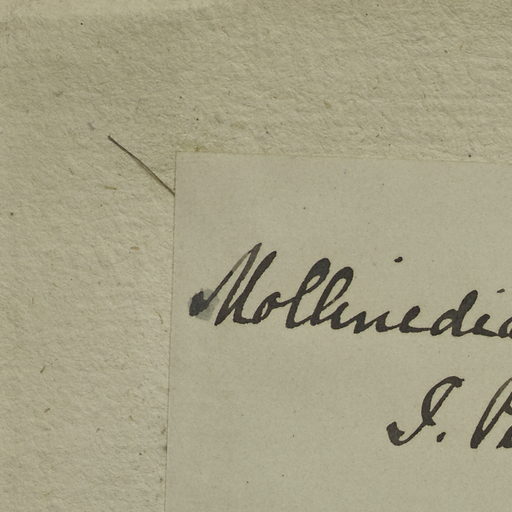 Mollinedia
J. P